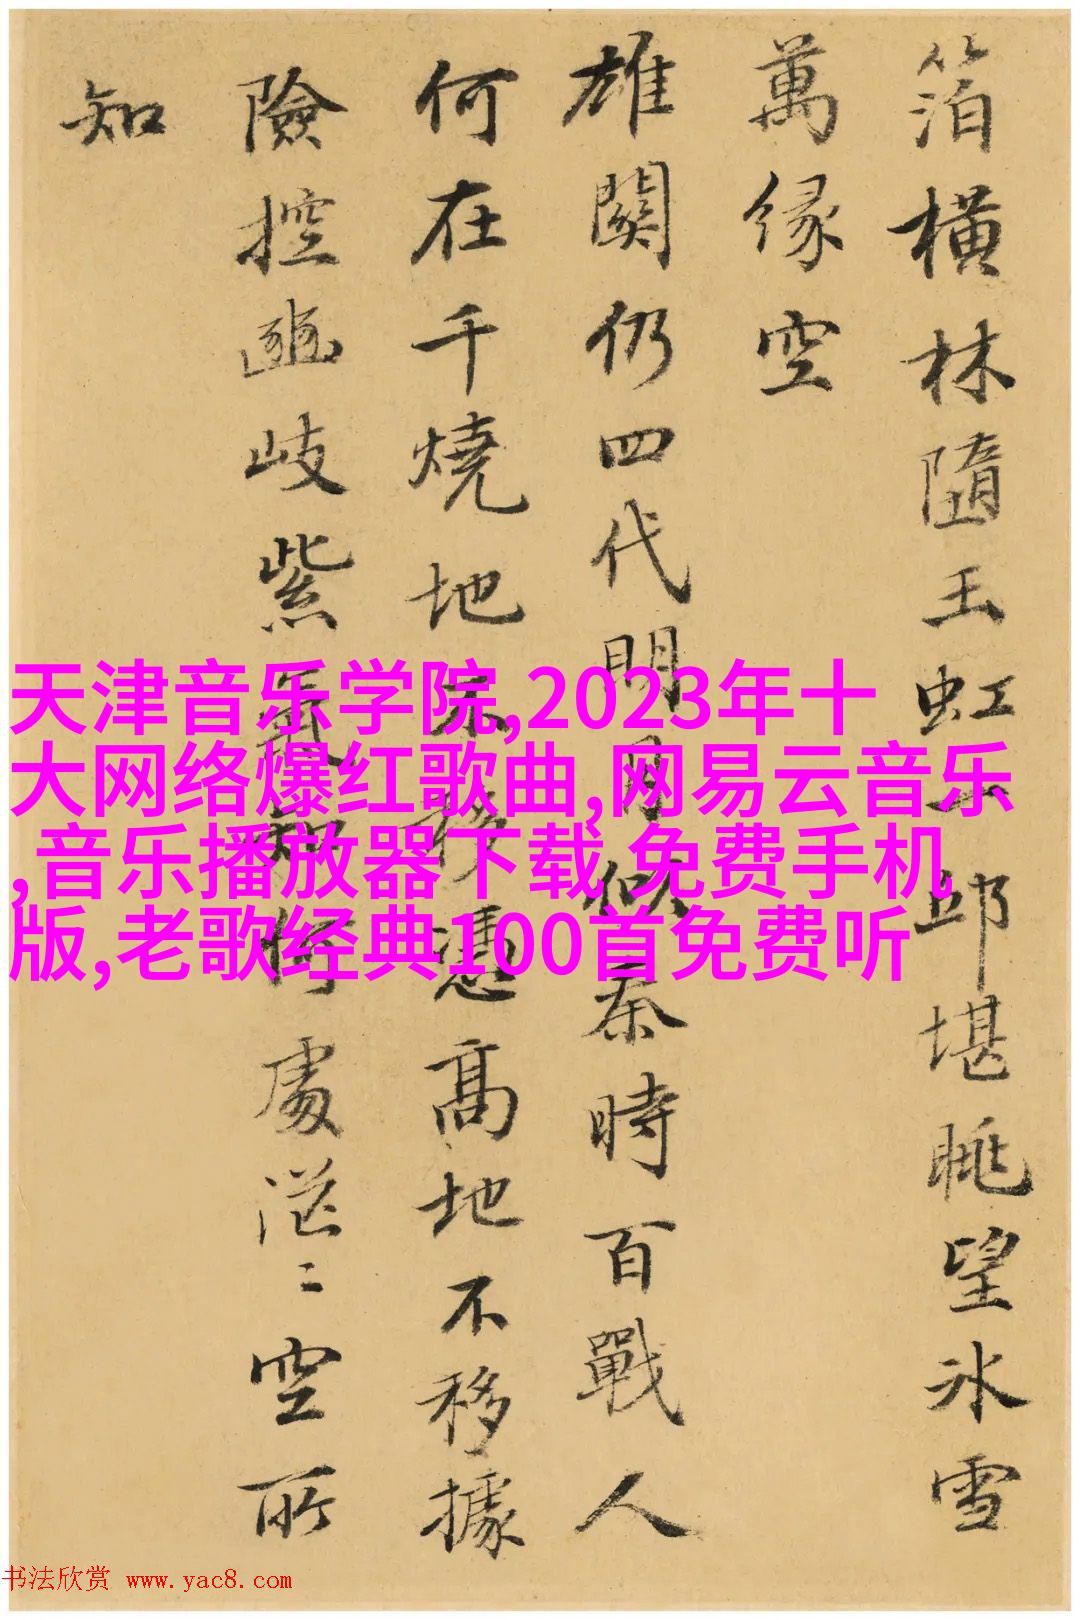 箔橫林隨玉虹邱堪眺望氷雪
萬緣空
雄關仍四代閒月似秦時百戰人
何在千燒地不移憑高地不移據
險控豳岐紫氣知何處茫〻空所
知
天津音乐学院,2023年十
大网络爆红歌曲,网易云音乐
,音乐播放器下载 免费手机
版,老歌经典100首免费听
书法欣赏 www.yac8.com